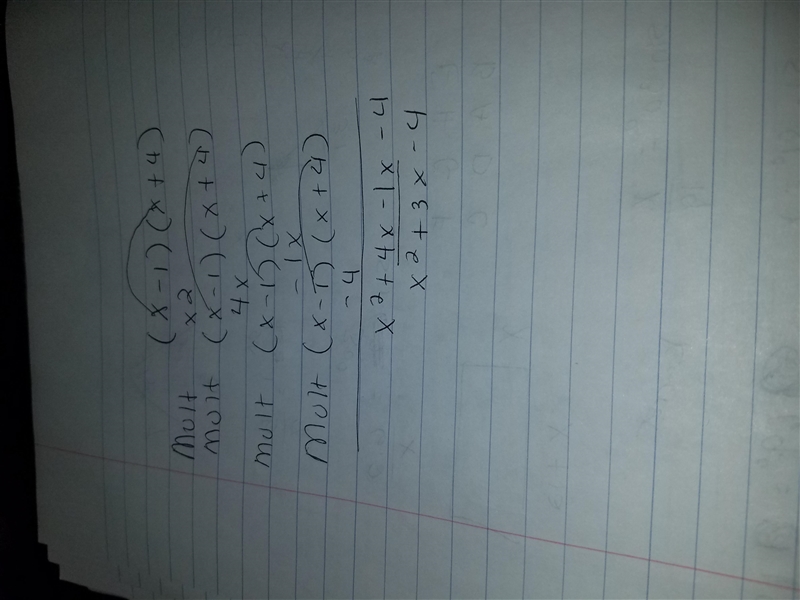 (x-1)(x+4)
Mult x2
mult (x-1)(x+4)
4x
mult (x-1)(x+4)
-1x
Mult (x-1)(x+4)
-4
x²+4x-1x-4
x²+3x-4